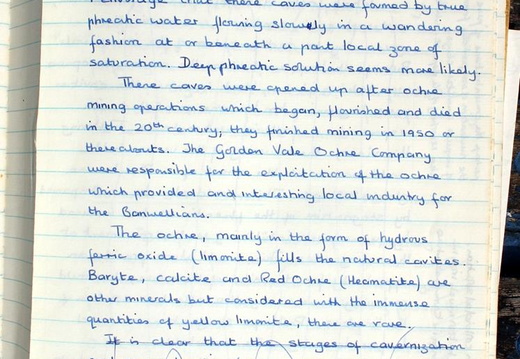 that these caves were formed by true
phreatic water flowing slowly in a wandering
fashion at or beneath a past local zone of
saturation. Deep phreatic solution seems more likely.
These caves were opened up after ochre
mining operations which began, flourished and died
in the 20th century, they finished mining in 1950 or
thereabouts. The Golden Vale Ochre Company
were responsible for the exploitation of the ochre
which provided and interesting local industry for
the Banwellians.
The ochre, mainly in the form of hydrous
ferric oxide (limonite) fills the natural cavities.
Baryte, calcite and Red Ochre (Heamatite) are
other minerals but considered with the immense
quantities of yellow limonite, these are rare.
It is clear that the stages of cavernization